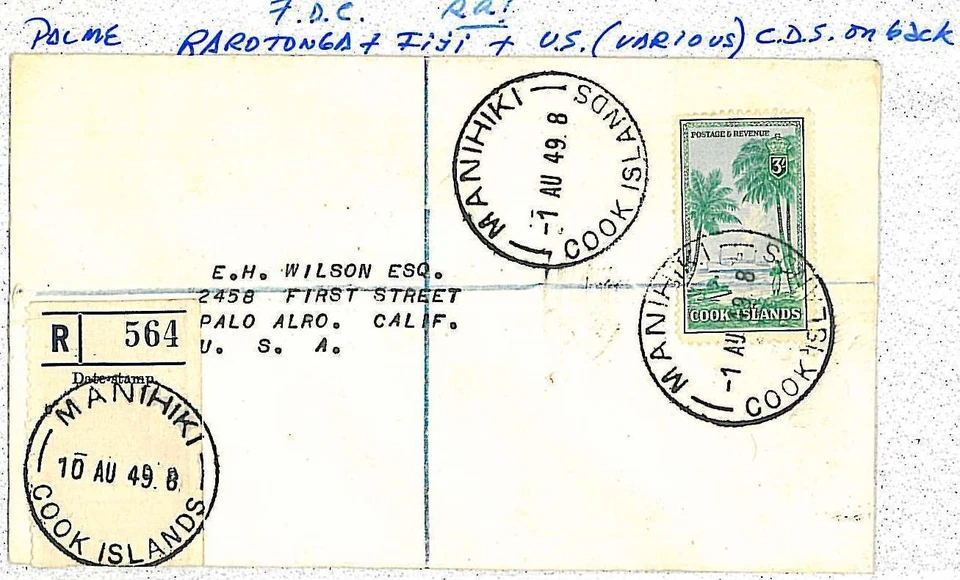 F.D.C. R.R!
PALME RAROTONGA + FIJI + U.S. (VARIOUS) C.D.S. on back
MANIHIKI
COOK ISLANDS
-1 AU 49. 8
POSTAGE & REVENUE
3/-
COOK ISLANDS
MANIHIKI
COOK ISLANDS
-1 AU 49 8
E.H. WILSON ESQ.
2458 FIRST STREET
PALO ALRO. CALIF.
U. S. A.
R 564
Date-stamp
MANIHIKI
10 AU 49. 8
COOK ISLANDS